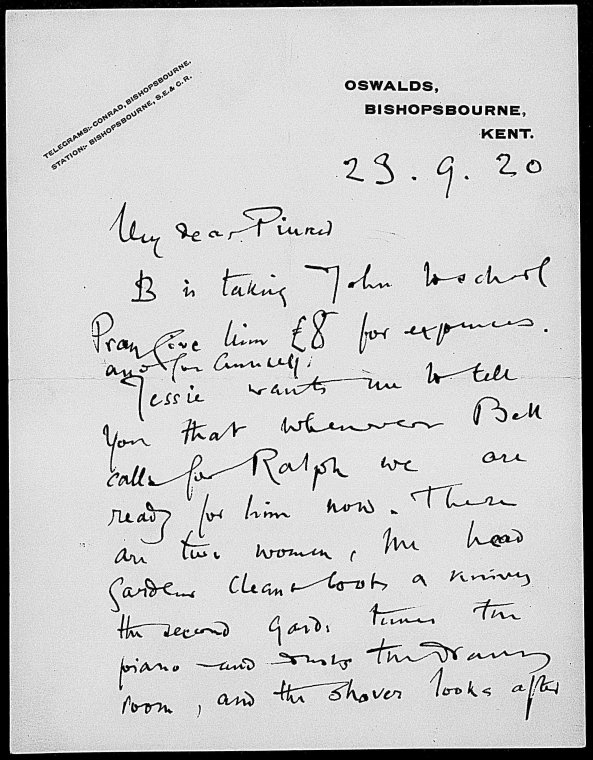 TELEGRAMS:-CONRAD, BISHOPSBOURNE.
STATION:- BISHOPSBOURNE, S.E. & C.R.
OSWALDS,
BISHOPSBOURNE,
KENT.
23.9.20
My dear
B is taking John to school
Pray give him £8 for expenses.
and for himself.
Jessie wants me to tell
you that whenever Bell
calls for Ralph we are
ready for him now. There
are two women, the head
gardener cleans boots & knives
the second gard: tunes the
piano and dusts the drawing
room, and the shover looks after